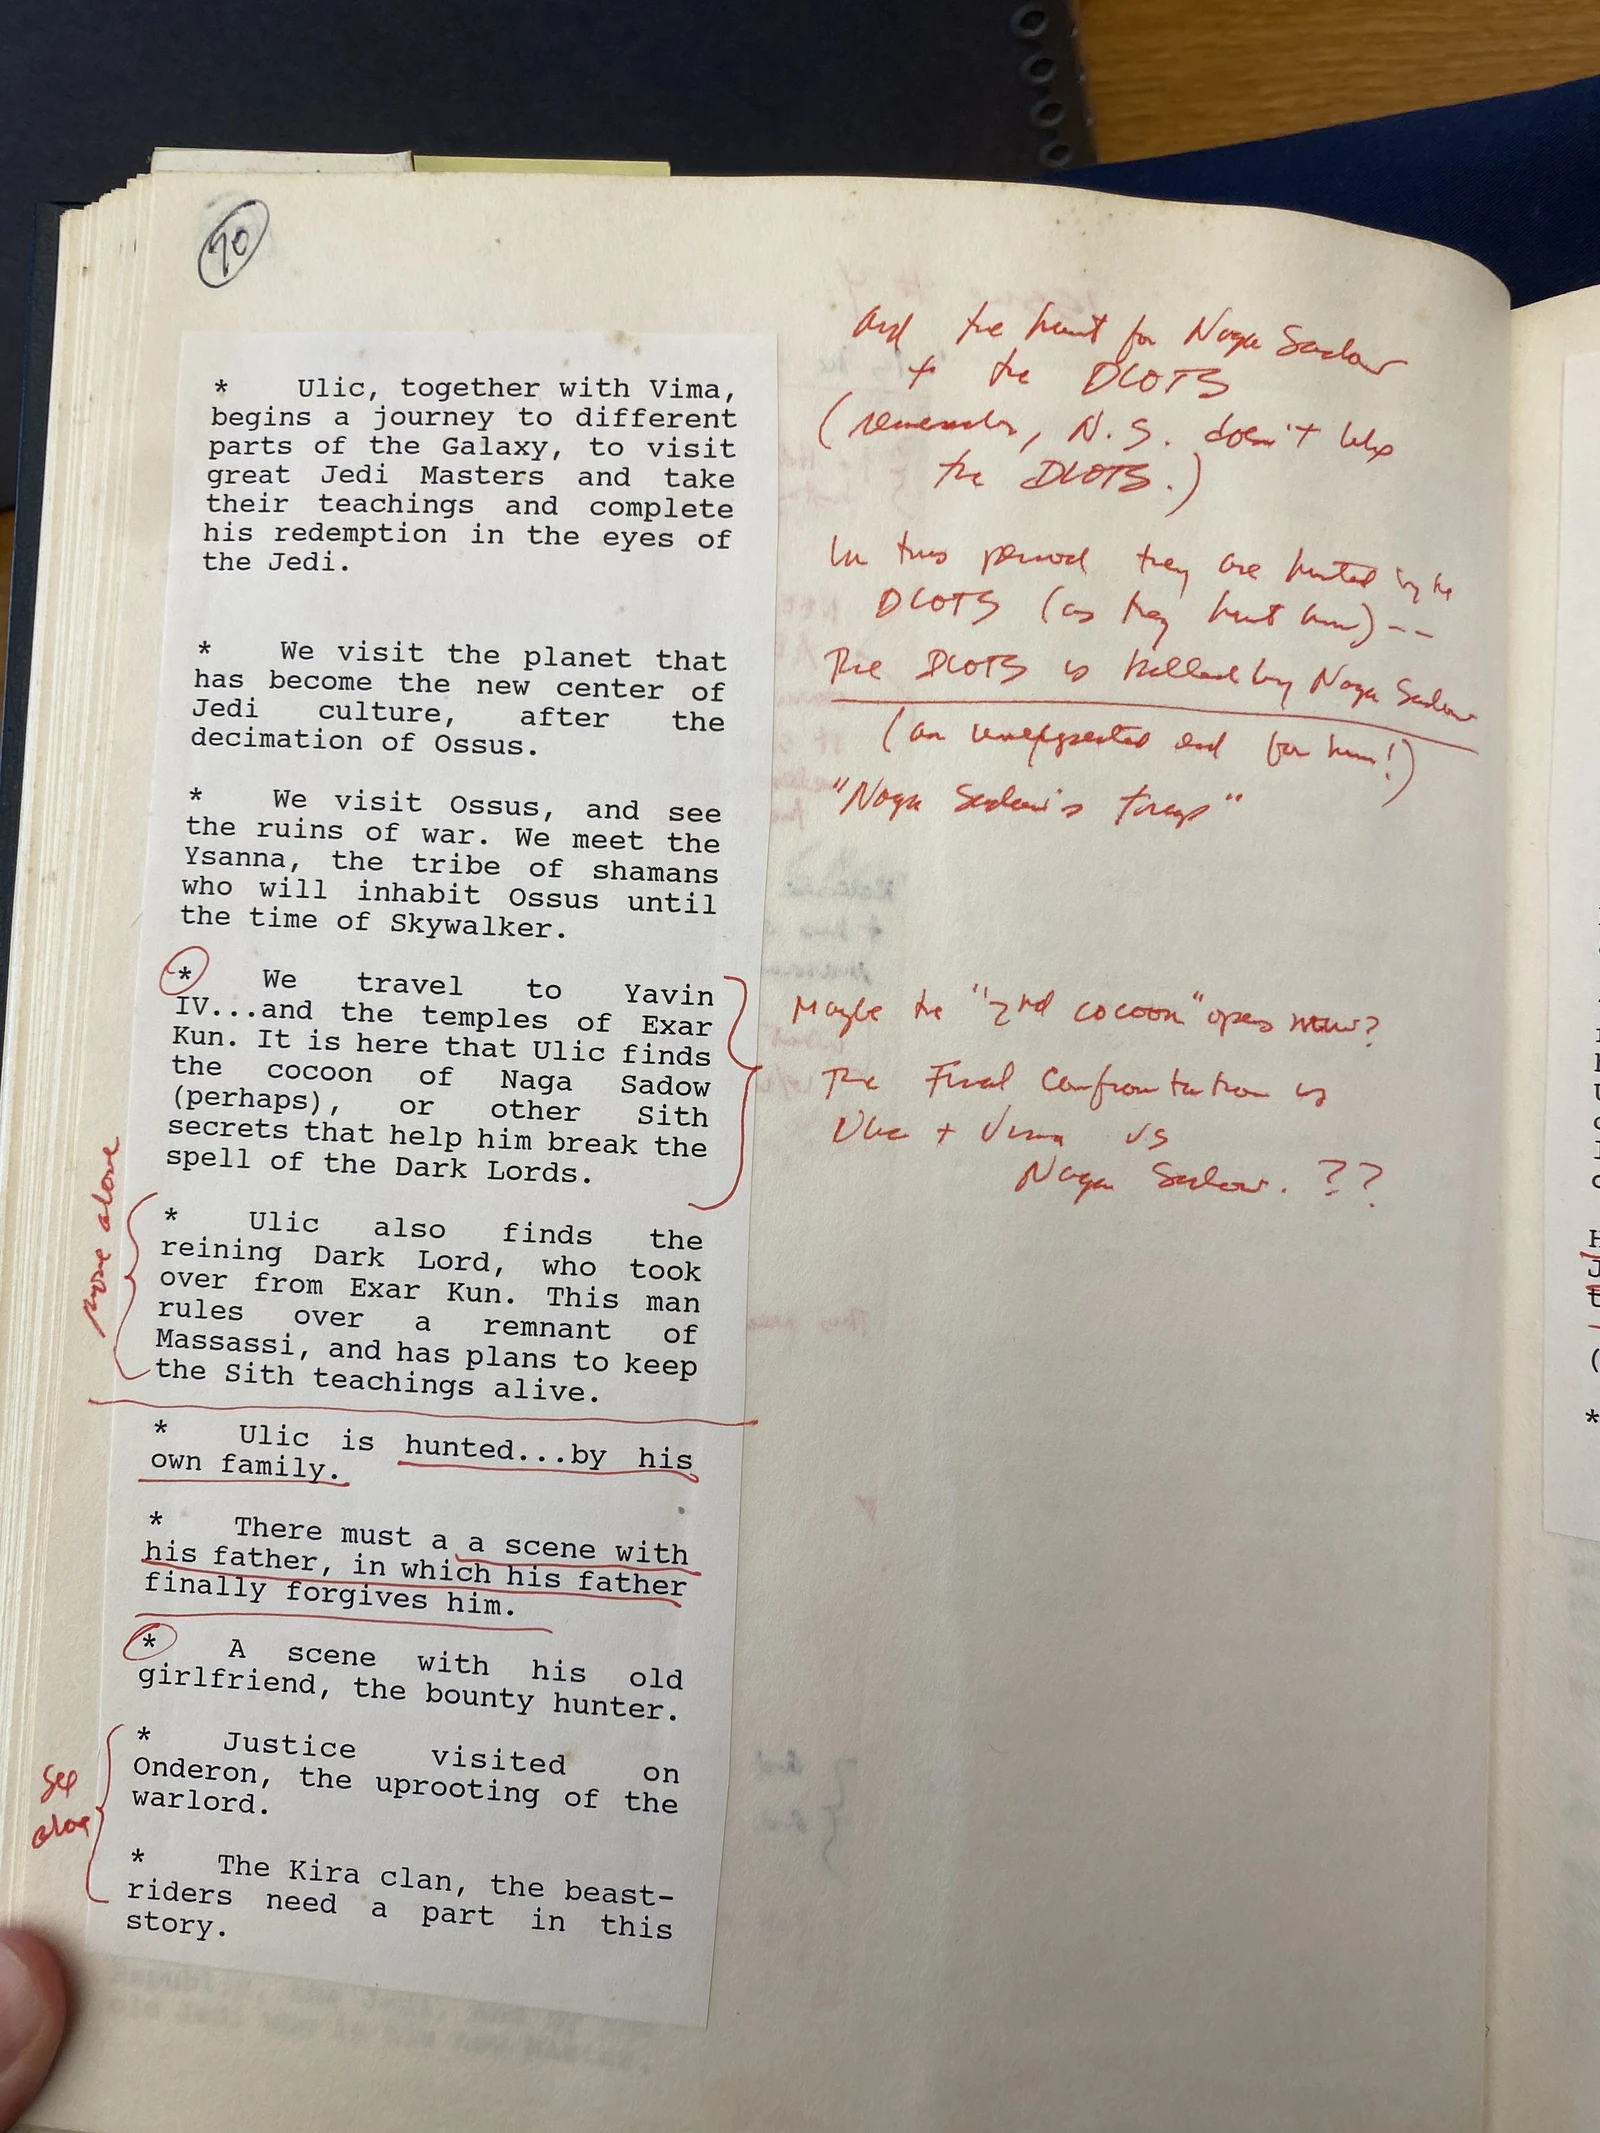 70
* Ulic, together with Vima,
begins a journey to different
parts of the Galaxy, to visit
great Jedi Masters and take
their teachings and complete
his redemption in the eyes of
the Jedi.
* We visit the planet that
has become the new center of
Jedi culture, after the
decimation of Ossus.
* We visit Ossus, and see
the ruins of war. We meet the
Ysanna, the tribe of shamans
who will inhabit Ossus until
the time of Skywalker.
* We travel to Yavin
IV...and the temples of Exar
Kun. It is here that Ulic finds
the cocoon of Naga Sadow
(perhaps), or other Sith
secrets that help him break the
spell of the Dark Lords.
* Ulic also finds the
reining Dark Lord, who took
over from Exar Kun. This man
rules over a remnant of
Massassi, and has plans to keep
the Sith teachings alive.
* Ulic is hunted...by his
own family.
* There must a a scene with
his father, in which his father
finally forgives him.
* A scene with his old
girlfriend, the bounty hunter.
* Justice visited on
Onderon, the uprooting of the
warlord.
* The Kira clan, the beast-
riders need a part in this
story.
see
and the hunt for Naga Sadow
+ the DLOTS
(remember, N.S. doesn't like
the DLOTS.)
In this period they are hunted by the
DLOTS (as they hunt him)--
The DLOTS is killed by Naga Sadow
(an unexpected end for him!)
"Naga Sadow's
Maybe the "2nd cocoon" opens now?
The Final Confrontation is
Ulic + Vima vs
Naga Sadow. ??